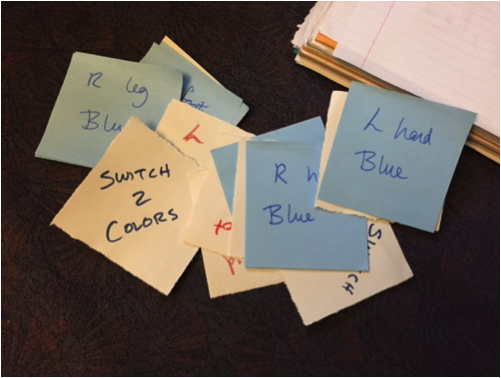 R leg
Blu
SWITCH
2
COLORS
L
R h
Blue
L hand
Blue